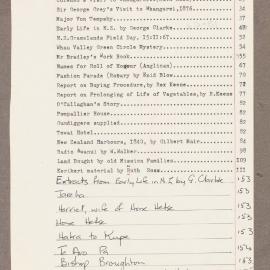 Sir George Grey's Visit to Whangarei, 1876. 34
Major Von Tempsky 37
Early Life in N.Z. by George Clarke
M.S. Grasslands Field Day. 15:11:67. 53
Whau Valley Green Circle Mystery 54
Mr Bradley's York Book
Names for Roll of Honour (Anglican) 67
Fashion Parade (Rotary by Enid Blow 70
Report on Buying Procedure, by Rex Keene 77
Report on Prolonging of Life of Vegetables, by R.Keene 77
O'Callaghan's Story 82
Pompallier House 82
Gumdiggers supplied 82
Towai Hotel 82
New Zealand Harbours, 1840, by Gilbert Mair 84
by W.Walker 98
Land Bought by old Mission Families 109
Kerikeri material by Ruth Ross 111
Extracts from Early Life in N.Z by G. Clarke 153
153
Harriet, wife of Hone Heke 153
Hone Heke 153
to Kupe 153
Te Ahu Pa 154
Bishop Broughton